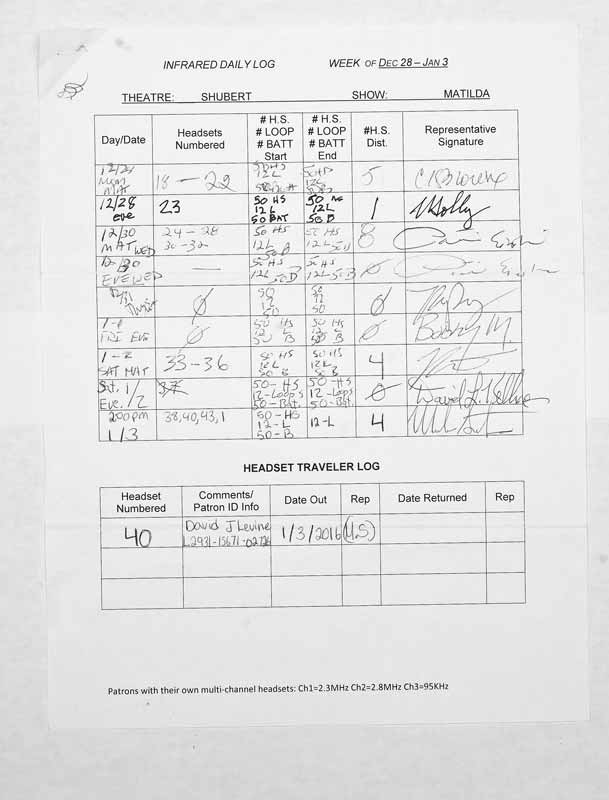 INFRARED DAILY LOG WEEK OF DEC 28 – JAN 3
THEATRE: SHUBERT SHOW: MATILDA
Day/Date Headsets Numbered # H.S. # LOOP # BATT Start # H.S. # LOOP # BATT End #H.S. Dist. Representative Signature
12/28 MAT 18 – 22 50 HS 12 L 50 HS 12 L 5
12/28 eve 23 50 HS 12 L 50 BAT 50 HS 12 L 50 B 1
12/30 MAT WED 24 – 28 30 – 32 50 HS 12L 50 B 50 HS 12L 50 B 8
12/30 EVE WED — 50 HS 12L 50 B 50 HS 12L 50 B 0
12/31 Ø 50 12 50 50 12 50 Ø
1-1 FRI EVE Ø 50 HS 12 L 50 B 50 HS 12 L 50 B Ø Bobby M.
1-2 SAT MAT 33 – 36 50 HS 12 L 50 B 50 HS 12 L 50 B 4
Sat. 1/2 Eve. 37 50 - HS 12 - Loops 50 - Bat. 50 - HS 12 - Loops 50 - Bat. Ø David L.
2:00pm 1/3 38, 40, 43, 1 50 - HS 12 - L 50 - B 12 - L 4
HEADSET TRAVELER LOG
Headset Numbered Comments/ Patron ID Info Date Out Rep Date Returned Rep
40 David J Levine L2931-15671-02726 1/3/2016 (M.S)
Patrons with their own multi-channel headsets: Ch1=2.3MHz Ch2=2.8MHz Ch3=95KHz